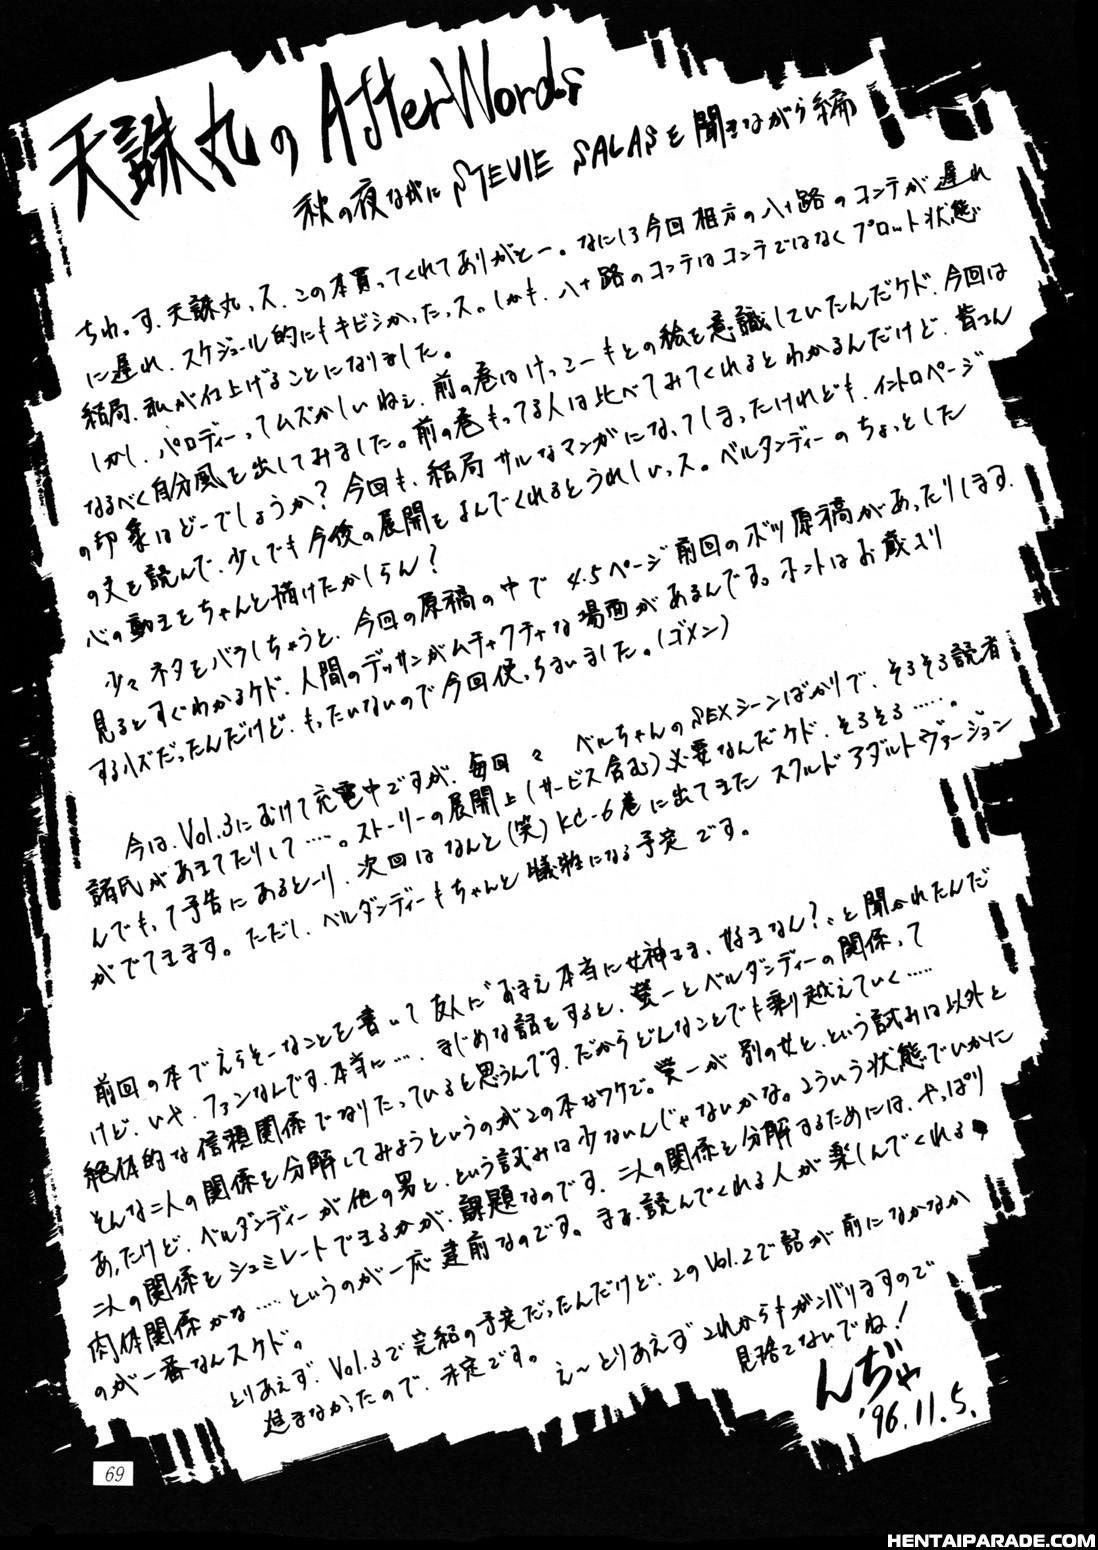 天誅丸の AfterWords
秋の夜ながに STEVIE SALASを聞きながら編
ちわっす、天誅丸っス、この本買ってくれてありがとー。なにしろ今回相方の八十路のコンテが遅れ
に遅れ、スケジュール的にもキビシかったっス。しかも、八十路のコンテはコンテではなくプロット状態
結局、私が仕上げることになりました。
しかし、パロディーってムズかしいねェ、前の巻はけっこーもとの絵を意識していたんだケド、今回は
なるべく自分風を出してみました。前の巻もってる人は比べてみてくれるとわかるんだけど、皆さん
の印象はどーでしょうか？今回も、結局サルなマンガになってしまったけれども、イントロページ
の文を読んで、少しでも今後の展開をよんでくれるとうれしいっス。ベルダンディーのちょっとした
心の動きをちゃんと描けたかしらん？
少々ネタをバラしちゃうと、今回の原稿の中で4.5ページ前回のボツ原稿があったりします。
見るとすぐわかるケド、人間のデッサンがムチャクチャな場面があるんです。ホントはお蔵入り
するハズだったんだけど、もったいないので今回使っちまいました。(ゴメン)
今は、Vol.3にむけて充電中ですが、毎回々 ベルちゃんのSEXシーンばかりで、そろそろ読者
諸氏があきてたりして……。ストーリーの展開上(サービス含む)必要なんだケド、そろそろ……。
んでもって予告にあるとーり、次回はなんと(笑)KC-6巻に出てきた スクルド アダルトヴァージョン
がでてきます。ただし、ベルダンディーもちゃんと犠牲になる予定です。
前回の本でえらそーなことを書いて友人に"おまえ本当に女神さま、好きなん？"と聞かれたんだ
けど、いや、ファンなんです、本当に…、まじめな話をすると、螢一とベルダンディーの関係って
絶体的な信頼関係でなりたっていると思うんです、だからどんなことでも乗り越えていく……
そんな二人の関係を分解してみようというのがこの本なワケで。螢一が 別の女と、という試みは以外と
あっただけど、ベルダンディーが他の男と、という試みは少ないんじゃないかな。こういう状態でいかに
二人の関係をシュミレートできるかが、課題なのです、二人の関係を分解するためには、やっぱり
肉体関係かな……というのが一応建前なのです。まぁ、読んでくれる人が楽しんでくれる
のが一番なんスケド。
とりあえず、Vol.3で完結の予定だったんだけど、このVol.2で話が前になかなか
進まなかったので、未定です。 え〜とりあえずこれからもガンバりますので
見捨てないでね！
んぢゃ
'96.11.5.
69
HENTAIPARADE.COM